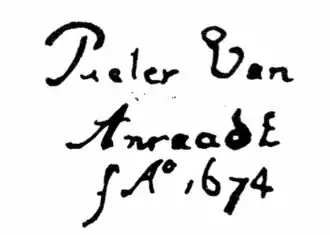 Pieter Van
AnraadE
f Aº, 674